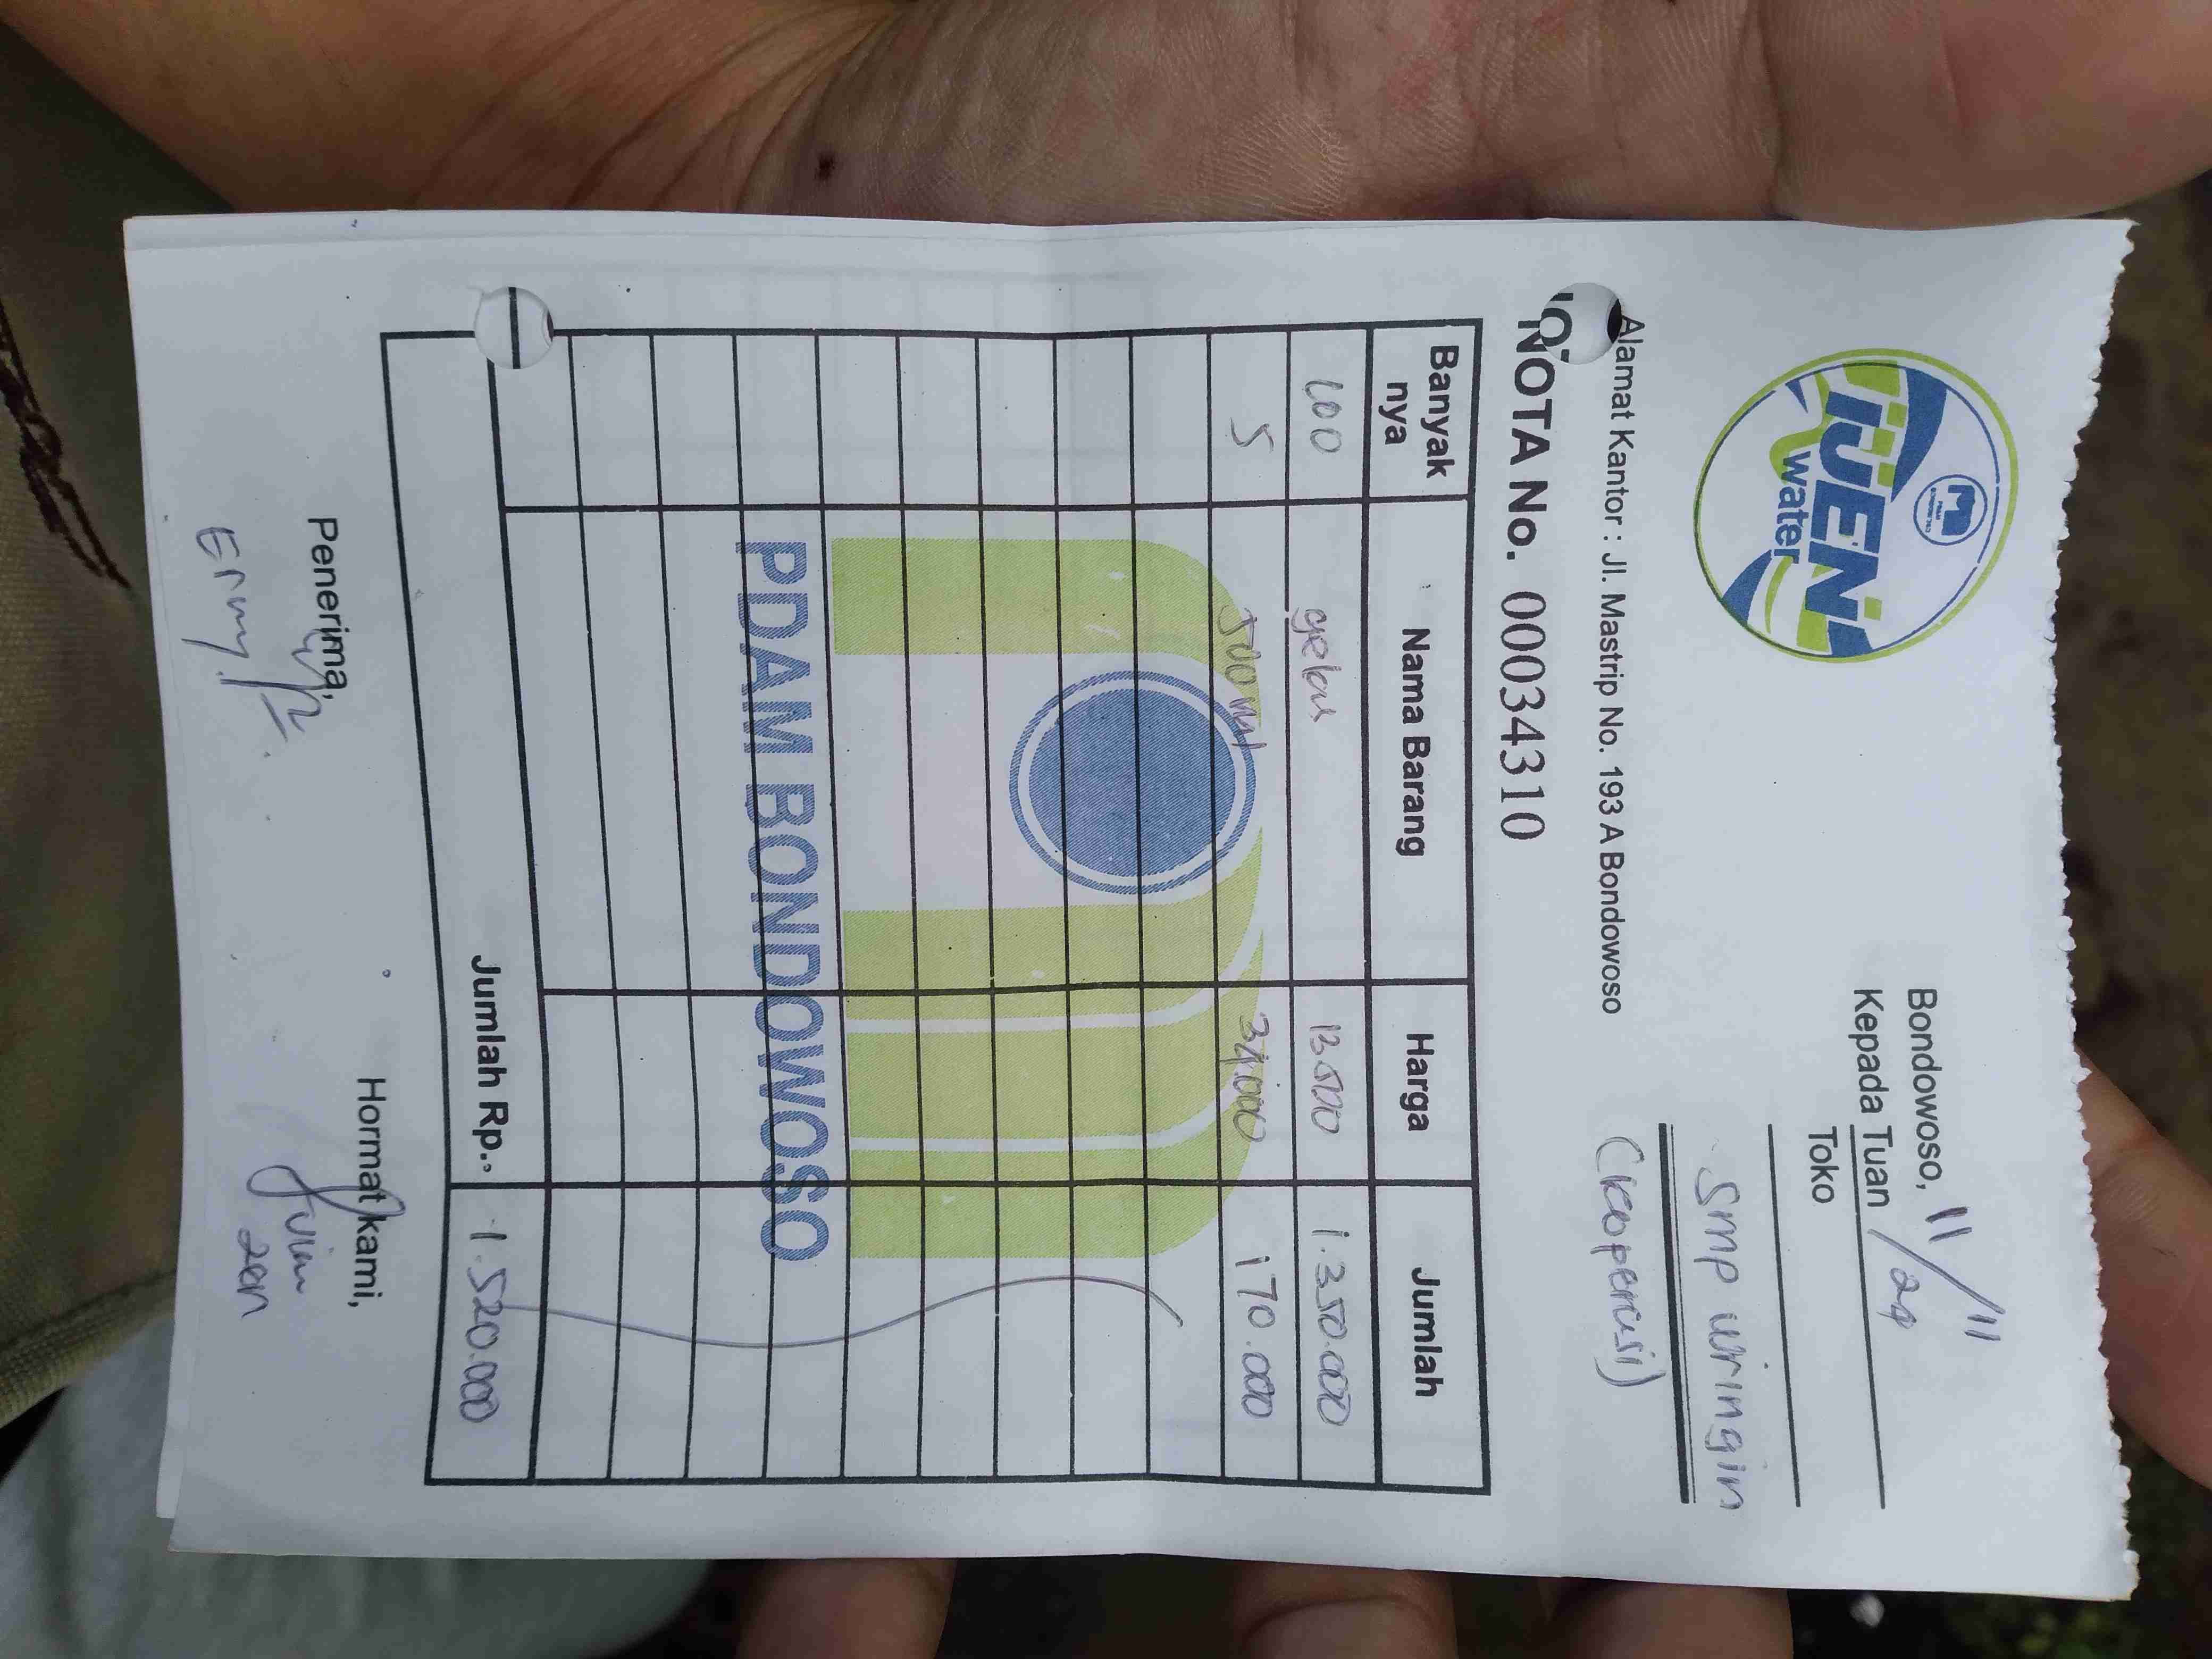 IJEN
water
Bondowoso, 11/11/24
Kepada Tuan
Toko
SMP wringin
(Koperasi)
Alamat Kantor : Jl. Mastrip No. 193 A Bondowoso
NOTA No. 00034310
Banyak nya Nama Barang Harga Jumlah
100 gelas 13.500 1.350.000
5 500 ml 34.000 170.000
PDAM BONDOWOSO
Jumlah Rp. 1.520.000
Penerima, Hormat kami,